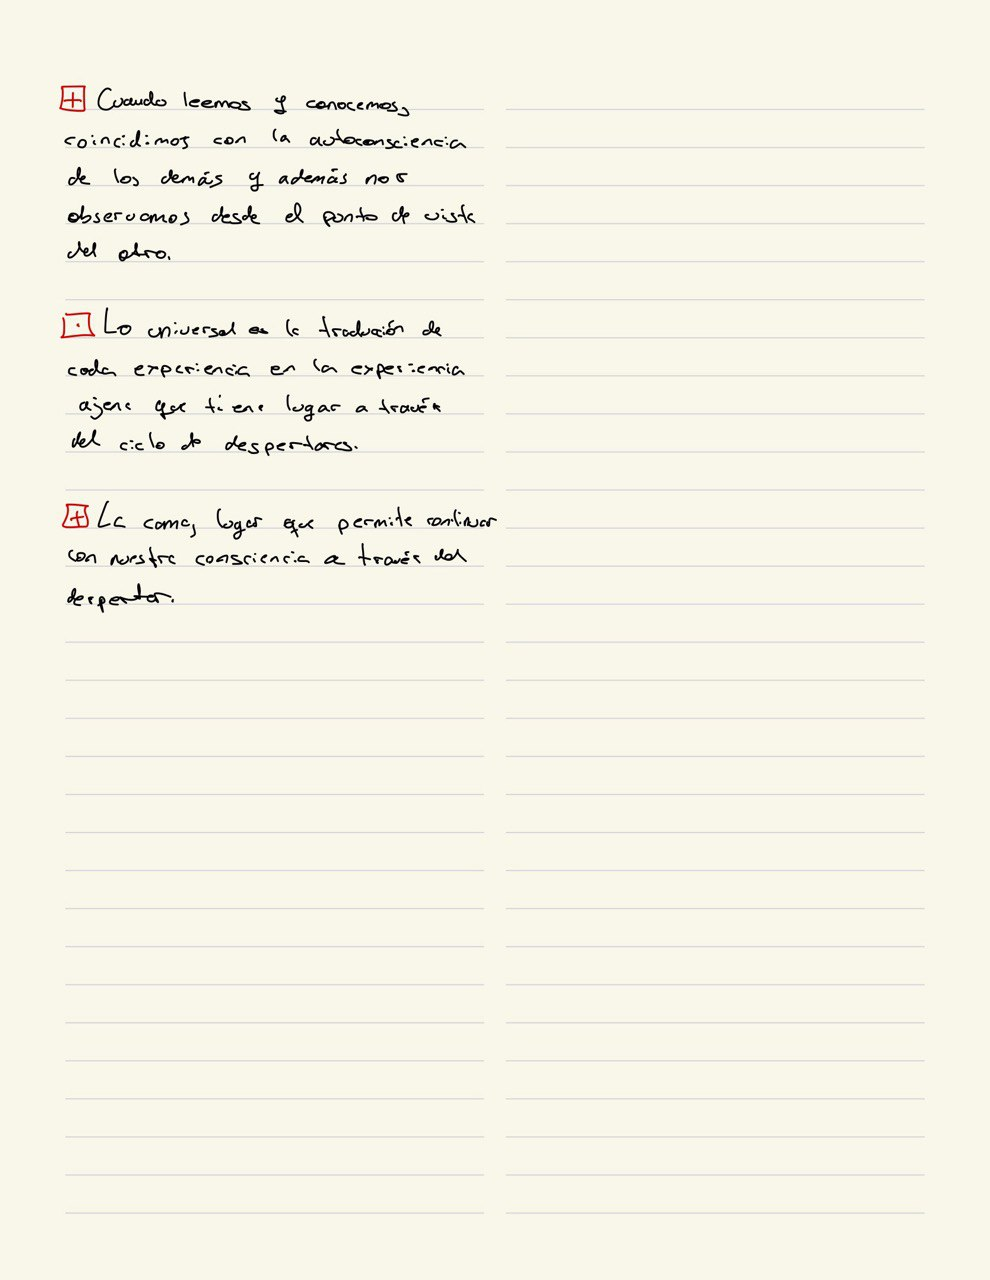 Cuando leemos y conocemos,
coincidimos con la autoconsciencia
de los demás y además nos
observamos desde el punto de vista
del otro.
Lo universal es la traducción de
cada experiencia en la experiencia
ajena que tiene lugar a través
del ciclo de despertares.
La cama, lugar que permite continuar
con nuestra consciencia a través del
despertar.